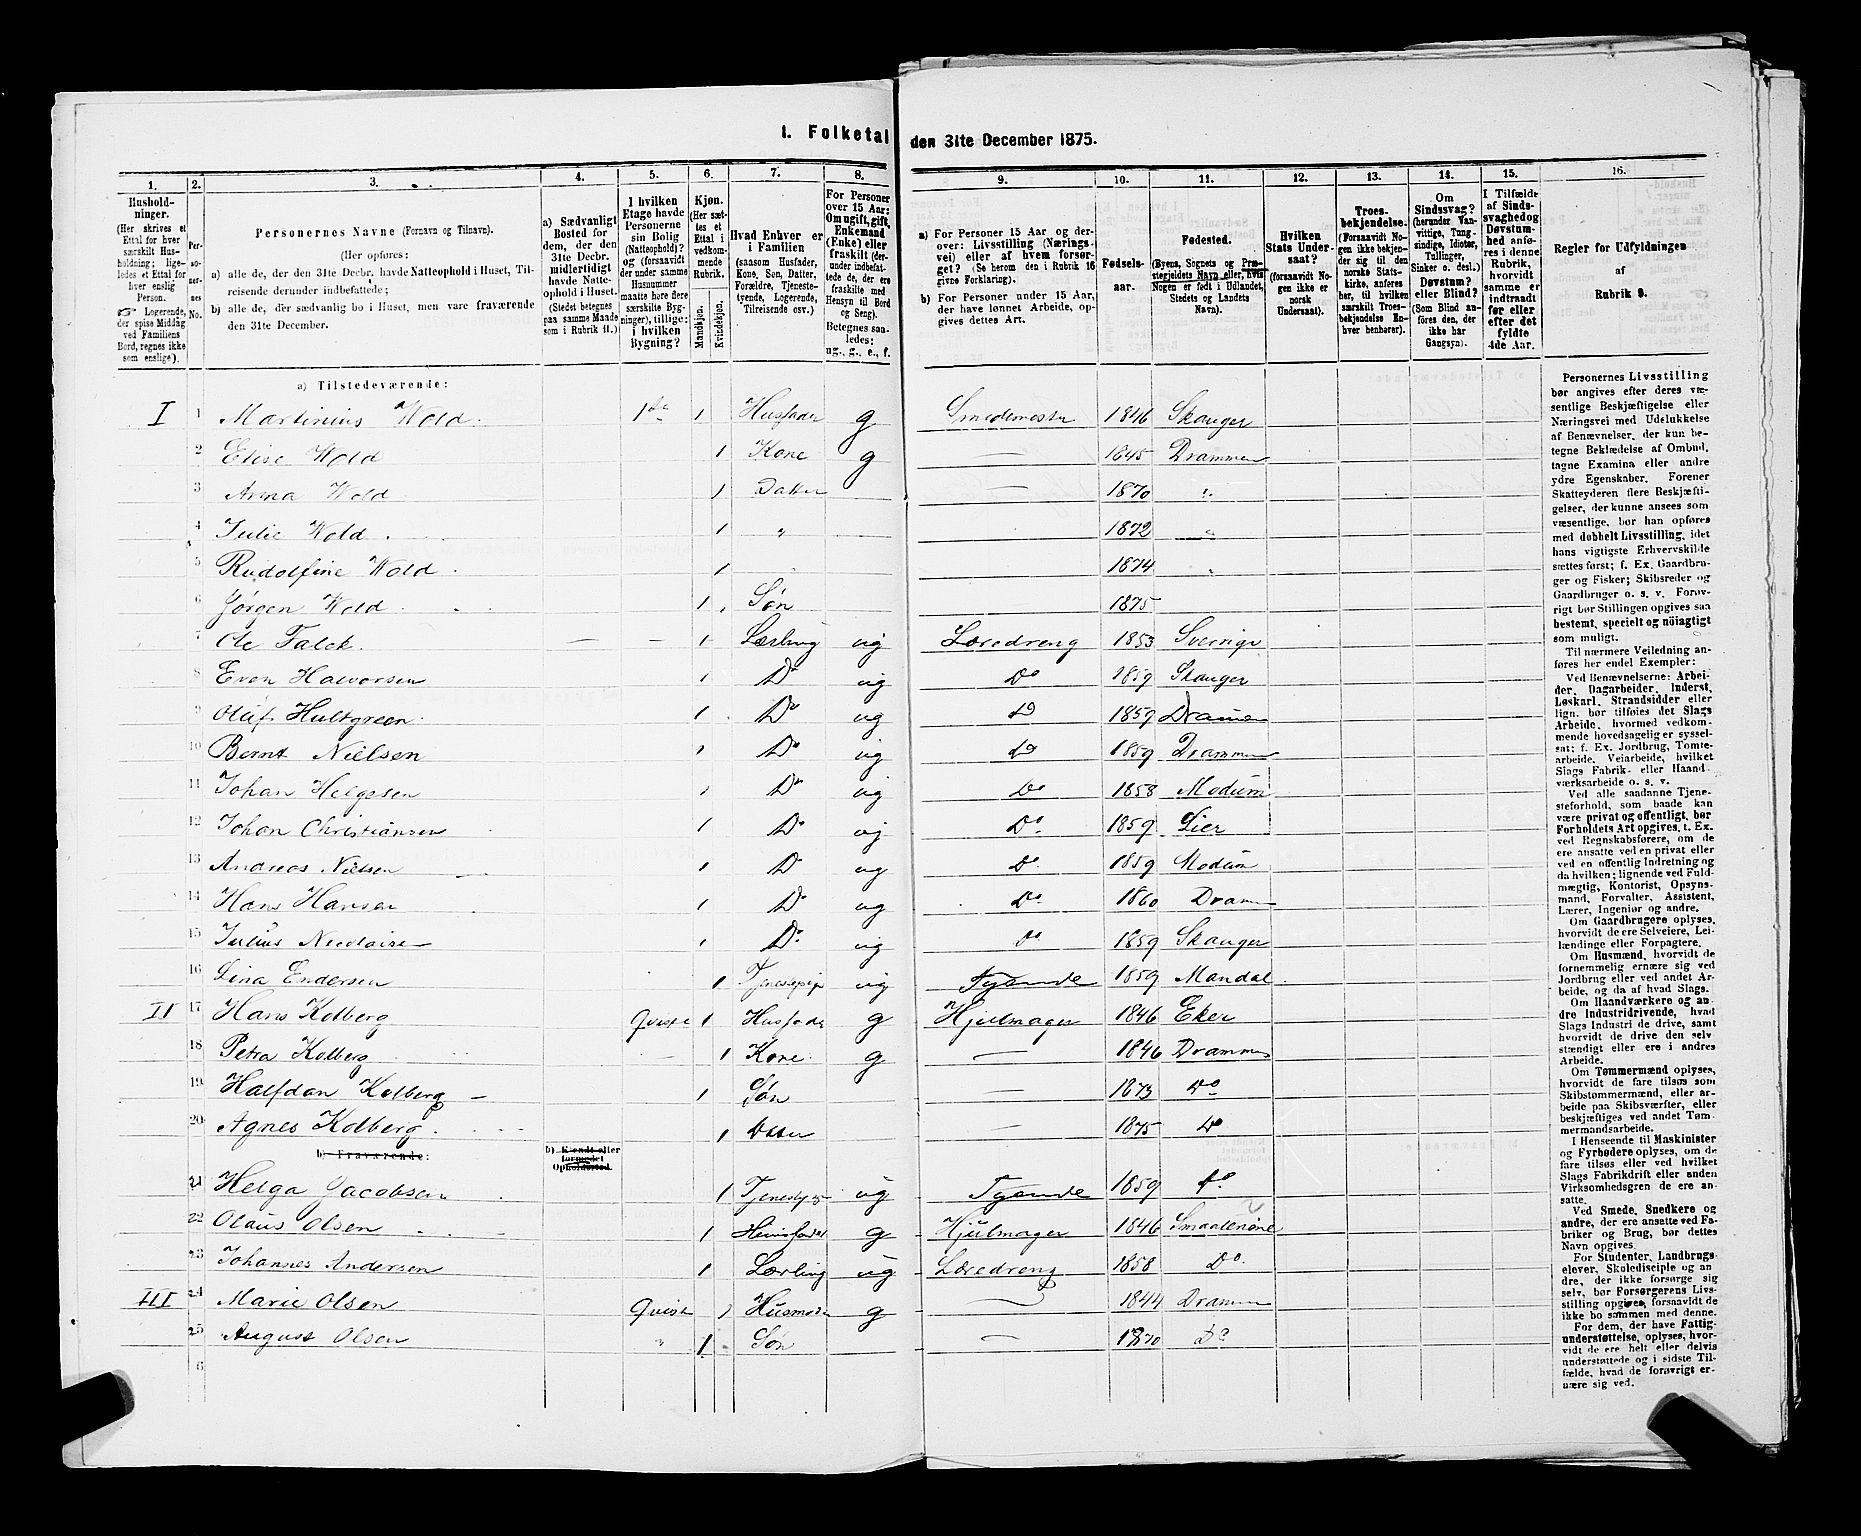 I. Folketal den 31te December 1875.
1. 2. 3. 4. 5. 6. 7. 8. 9. 10. 11. 12. 13. 14. 15. 16.
Husholdninger.
(Her skrives et Ettal for hver særskilt Husholdning; ligeledes et Ettal for hver enslig Person.
☞ Logerende, der spise Middag ved Familiens Bord, regnes ikke som enslige).
Personernes No.
Personernes Navne (Fornavn og Tilnavn).
(Her opføres:
a) alle de, der den 31te Decbr. havde Natteophold i Huset, Tilreisende derunder indbefattede;
b) alle de, der sædvanlig bo i Huset, men vare fraværende den 31te December.
a) Sædvanligt Bosted for dem, der den 31te Decbr. midlertidigt havde Natteophold i Huset.
(Stedet betegnes paa samme Maade som i Rubrik 11.)
I hvilken Etage havde Personerne sin Bolig (Natteophold)? og (forsaavidt der under samme Husnummer maatte høre flere særskilte Bygninger), tillige: i hvilken Bygning?
Kjøn.
(Her sættes et Ettal i vedkommende Rubrik.
Mandkjøn. Kvindekjøn.
Hvad Enhver er i Familien
(saasom Husfader, Kone, Søn, Datter, Forældre, Tjenestetyende, Logerende, Tilreisende osv.)
For Personer over 15 Aar: Om ugift, gift, Enkemand (Enke) eller fraskilt (derunder indbefattede de, der ere fraskilte med Hensyn til Bord og Seng).
Betegnes saaledes:
ug., g., e., f.
a) For Personer 15 Aar og derover: Livsstilling (Næringsvei) eller af hvem forsørget? (Se herom den i Rubrik 16 givne Forklaring).
b) For Personer under 15 Aar, der have lønnet Arbeide, opgives dettes Art.
Fødselsaar.
Fødested.
(Byens, Sognets og Præstegjeldets Navn eller, hvis Nogen er født i Udlandet, Stedets og Landets Navn).
Hvilken Stats Undersaat?
(forsaavidt Nogen ikke er norsk Undersaat).
Troesbekjendelse.
(Forsaavidt Nogen ikke bekjender sig til den norske Statskirke, anføres her, til hvilken særskilt Troesbekjendelse Enhver benhører).
Om Sindssvag?
(herunder Vanvittige, Tungsindige, Idioter, Tullinger, Sinker o. desl.)
Døvstum? eller Blind?
(Som Blind anføres den, der ikke har Gangsyn).
I Tilfælde af Sindssvaghed og Døvstumhed anføres i denne Rubrik, hvorvidt samme er indtraadt før eller efter det fyldte 4de Aar.
Regler for Udfyldningen af Rubrik 9.
a) Tilstedeværende:
I 1 Martinius Wold 1ste 1 Husfader g Smedemester 1846 Skauger
2 Elise Wold 1 Kone g — 1845 Drammen
3 Anna Wold 1 Datter — 1870 "
4 Julie Wold 1 " 1872 "
5 Rudolfine Wold 1 " 1874 "
6 Jørgen Wold 1 Søn 1875
7 Ole Falck — — 1 Lærling ug Læredreng 1853 Sverrige
8 Even Halvorsen 1 Do ug Do 1859 Skauger
9 Oluf Hultgreen 1 Do ug Do 1859 Drammen
10 Bernt Nielsen 1 Do ug Do 1859 Drammen
11 Johan Helgesen 1 Do ug Do 1858 Modum
12 Johan Christiansen 1 Do ug Do 1859 Lier
13 Andreas Nielsen 1 Do ug Do 1859 Modum
14 Hans Hansen 1 Do ug Do 1860 Drammen
15 Julius Nicolaisen 1 Do ug Do 1859 Skauger
16 Lina Endersen 1 Tjenestepige ug Tyende 1859 Mandal
II 17 Hans Kolberg Qvist 1 Husfader g Hjulmager 1846 Eker
18 Petra Kolberg 1 Kone g — 1846 Drammen
19 Halfdan Kolberg 1 Søn — 1873 Do
20 Agnes Kolberg 1 Datter — 1875 Do
b) Fraværende: b) Kjendt eller formodet Opholdssted.
21 Helga Jacobsen 1 Tjenestepige ug Tyende 1859 Do
22 Olaus Olsen 1 Husfader g Hjulmager 1846 Smaalenene
23 Johannes Andersen 1 Lærling ug Læredreng 1858 Do
III 24 Marie Olsen Qvist 1 Husmoder g — 1844 Drammen
25 August Olsen " 1 Søn — 1870 Do
6
Personernes Livsstilling
bør angives efter deres væsentlige Beskjæftigelse eller
Næringsvei med Udelukkelse
af Benævnelser, der kun betegne Beklædelse af Ombud,
tagne Examina eller andre
ydre Egenskaber. Forener
Skatteyderen flere Beskjæftigelser, der kunne ansees som
væsentlige, bør han opføres
med dobbelt Livsstilling, idet
hans vigtigste Erhvervskilde
sættes først; f. Ex. Gaardbruger og Fisker; Skibsreder og
Gaardbruger o. s. v. Forøvrigt bør Stillingen opgives saa
bestemt, specielt og nøiagtigt
som muligt.
Til nærmere Veiledning anføres her endel Exempler:
Ved Benævnelserne: Arbeider, Dagarbeider, Inderst,
Løskarl, Strandsidder eller
lign. bør tilføies det Slags
Arbeide, hvormed vedkommende hovedsagelig er sysselsat; f. Ex. Jordbrug, Tomtearbeide, Veiarbeide, hvilket
Slags Fabrik- eller Haandværksarbeide o. s. v.
Ved alle saadanne Tjenesteforhold, som baade kan
være privat og offentligt, bør
Forholdets Art opgives, t. Ex.
ved Regnskabsførere, om de
ere ansatte ved en privat eller
ved en offentlig Indretning og
da hvilken; lignende ved Fuldmægtig, Kontorist, Opsynsmand, Forvalter, Assistent,
Lærer, Ingeniør og andre.
Om Gaardbrugere oplyses,
hvorvidt de ere Selveiere, Leilændinge eller Forpagtere.
Om Husmænd, hvorvidt de
fornemmelig ernære sig ved
Jordbrug eller ved andet Arbeide, og da af hvad Slags.
Om Haandværkere og andre Industridrivende, hvad
Slags Industri de drive, samt
hvorvidt de drive den selvstændigt eller ere i andres
Arbeide.
Om Tømmermænd oplyses,
hvorvidt de fare tilsøs som
Skibstømmermænd, eller arbeide paa Skibsværfter, eller
beskjæftiges ved andet Tømmermandsarbeide.
I Henseende til Maskinister
og Fyrbødere oplyses, om de
fare tilsøs eller ved hvilket
Slags Fabrikdrift eller anden
Virksomhedsgren de ere ansatte.
Ved Smede, Snedkere og
andre, der ere ansatte ved Fabriker og Brug, bør dettes
Navn opgives.
For Studenter, Landbrugselever, Skoledisciple og andre, der ikke forsørge sig
selv, bør Forsørgerens Livsstilling opgives, forsaavidt de
ikke bo sammen med denne.
For dem, der have Fattigunderstøttelse, oplyses, hvorvidt de ere helt eller delvis
understøttede og i sidste Tilfælde, hvad de forøvrigt ernære sig ved.